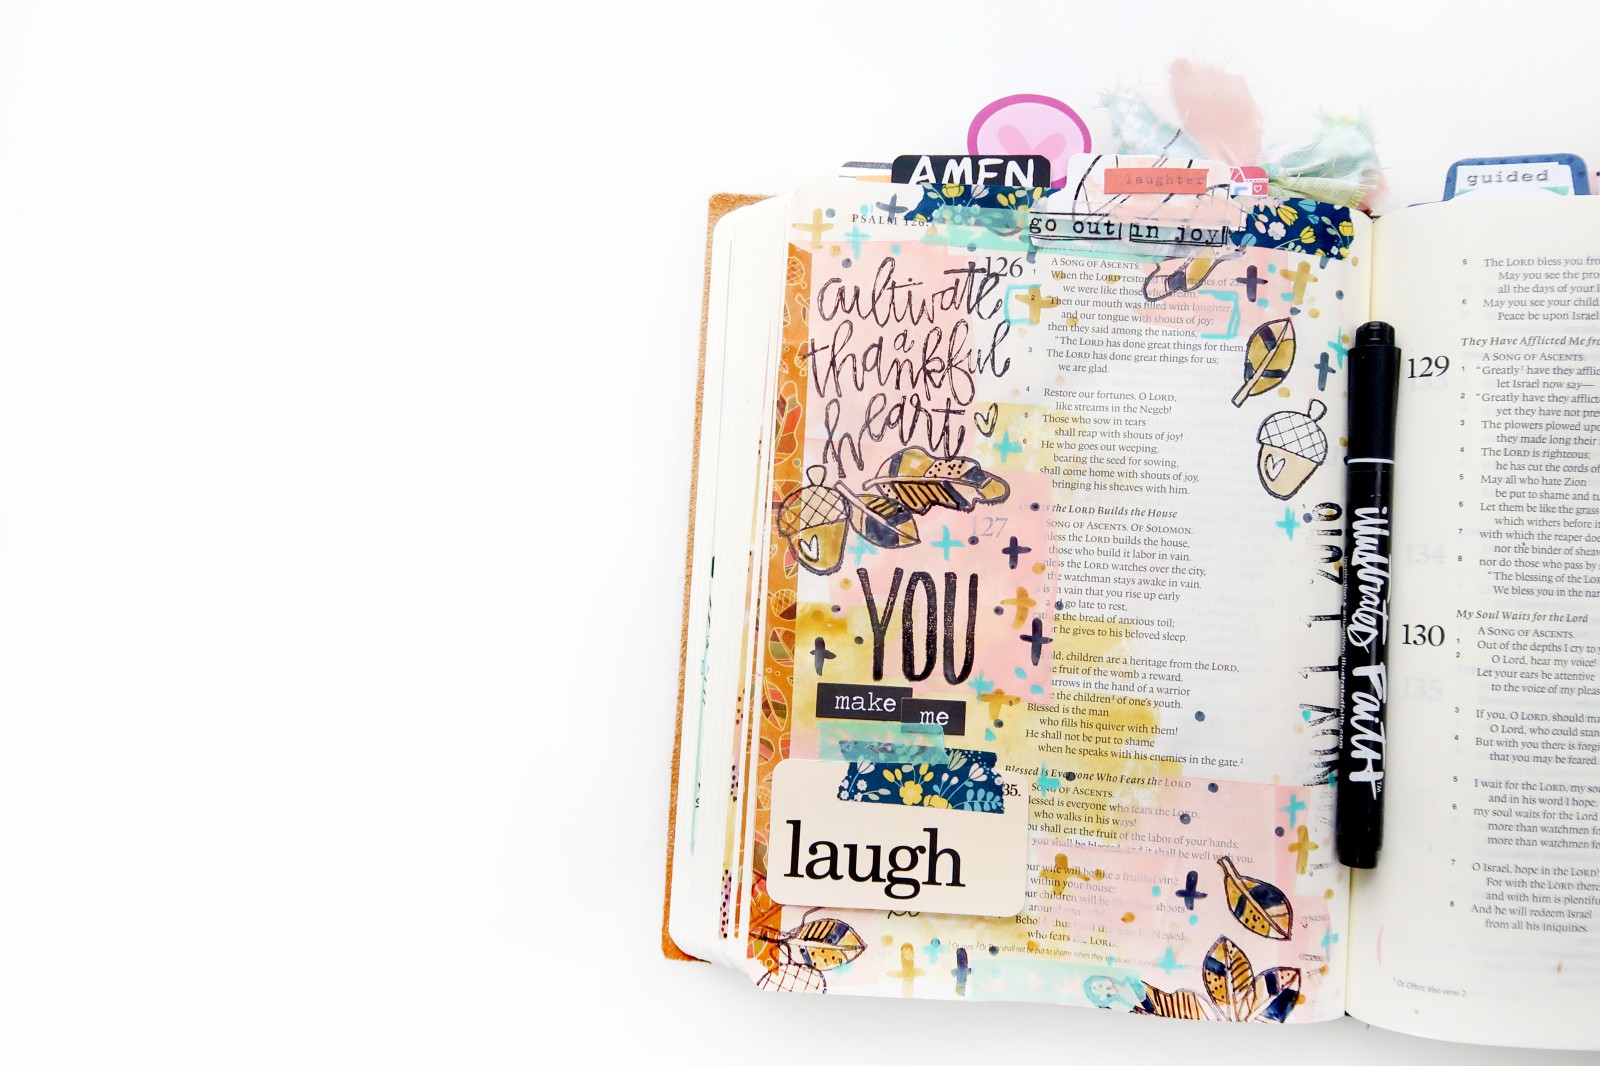 AMEN
laughter
go out in joy
guided
PSALM 126:
cultivate
a
thankful
heart
YOU
make me
laugh
35.
126
A SONG OF ASCENTS.
1 When the LORD restored the fortunes of Zi
we were like those who dream.
2 Then our mouth was filled with laughter,
and our tongue with shouts of joy;
then they said among the nations,
"The LORD has done great things for them."
3 The LORD has done great things for us;
we are glad.
4 Restore our fortunes, O LORD,
like streams in the Negeb!
5 Those who sow in tears
shall reap with shouts of joy!
6 He who goes out weeping,
bearing the seed for sowing,
shall come home with shouts of joy,
bringing his sheaves with him.
the LORD Builds the House
127
SONG OF ASCENTS. OF SOLOMON.
less the LORD builds the house,
those who build it labor in vain.
less the LORD watches over the city,
the watchman stays awake in vain.
is in vain that you rise up early
and go late to rest,
eating the bread of anxious toil;
for he gives to his beloved sleep.
old, children are a heritage from the LORD,
the fruit of the womb a reward.
arrows in the hand of a warrior
e the children¹ of one's youth.
5 Blessed is the man
who fills his quiver with them!
He shall not be put to shame
when he speaks with his enemies in the gate.²
Blessed Is Everyone Who Fears the LORD
SONG OF ASCENTS.
lessed is everyone who fears the LORD,
who walks in his ways!
ou shall eat the fruit of the labor of your hands;
you shall be blessed, and it shall be well with you.
our wife will be like a fruitful vine
within your house;
our children will be like olive shoots
around your
Behold, thus the man be blessed
who fears the LORD.
illustrated FAITH™
5 The LORD bless you fro
May you see the pro
all the days of your l
6 May you see your child
Peace be upon Israel
They Have Afflicted Me fro
129
A SONG OF ASCENTS.
1 "Greatly¹ have they afflic
let Israel now say—
2 "Greatly have they afflict
yet they have not pre
3 The plowers plowed upo
they made long their
4 The LORD is righteous;
he has cut the cords of
5 May all who hate Zion
be put to shame and tu
6 Let them be like the grass
which withers before it
7 with which the reaper doe
nor the binder of sheav
8 nor do those who pass by
"The blessing of the LOR
We bless you in the nam
My Soul Waits for the Lord
130
A SONG OF ASCENTS.
1 Out of the depths I cry to y
2 O Lord, hear my voice!
Let your ears be attentive
to the voice of my pleas
3 If you, O LORD, should ma
O Lord, who could stan
4 But with you there is forgi
that you may be feared.
5 I wait for the LORD, my so
and in his word I hope;
6 my soul waits for the Lord
more than watchmen fo
more than watchmen fo
7 O Israel, hope in the LORD!
For with the LORD there
and with him is plentifu
8 And he will redeem Israel
from all his iniquities.
134
135
¹ Or Often; also verse 2